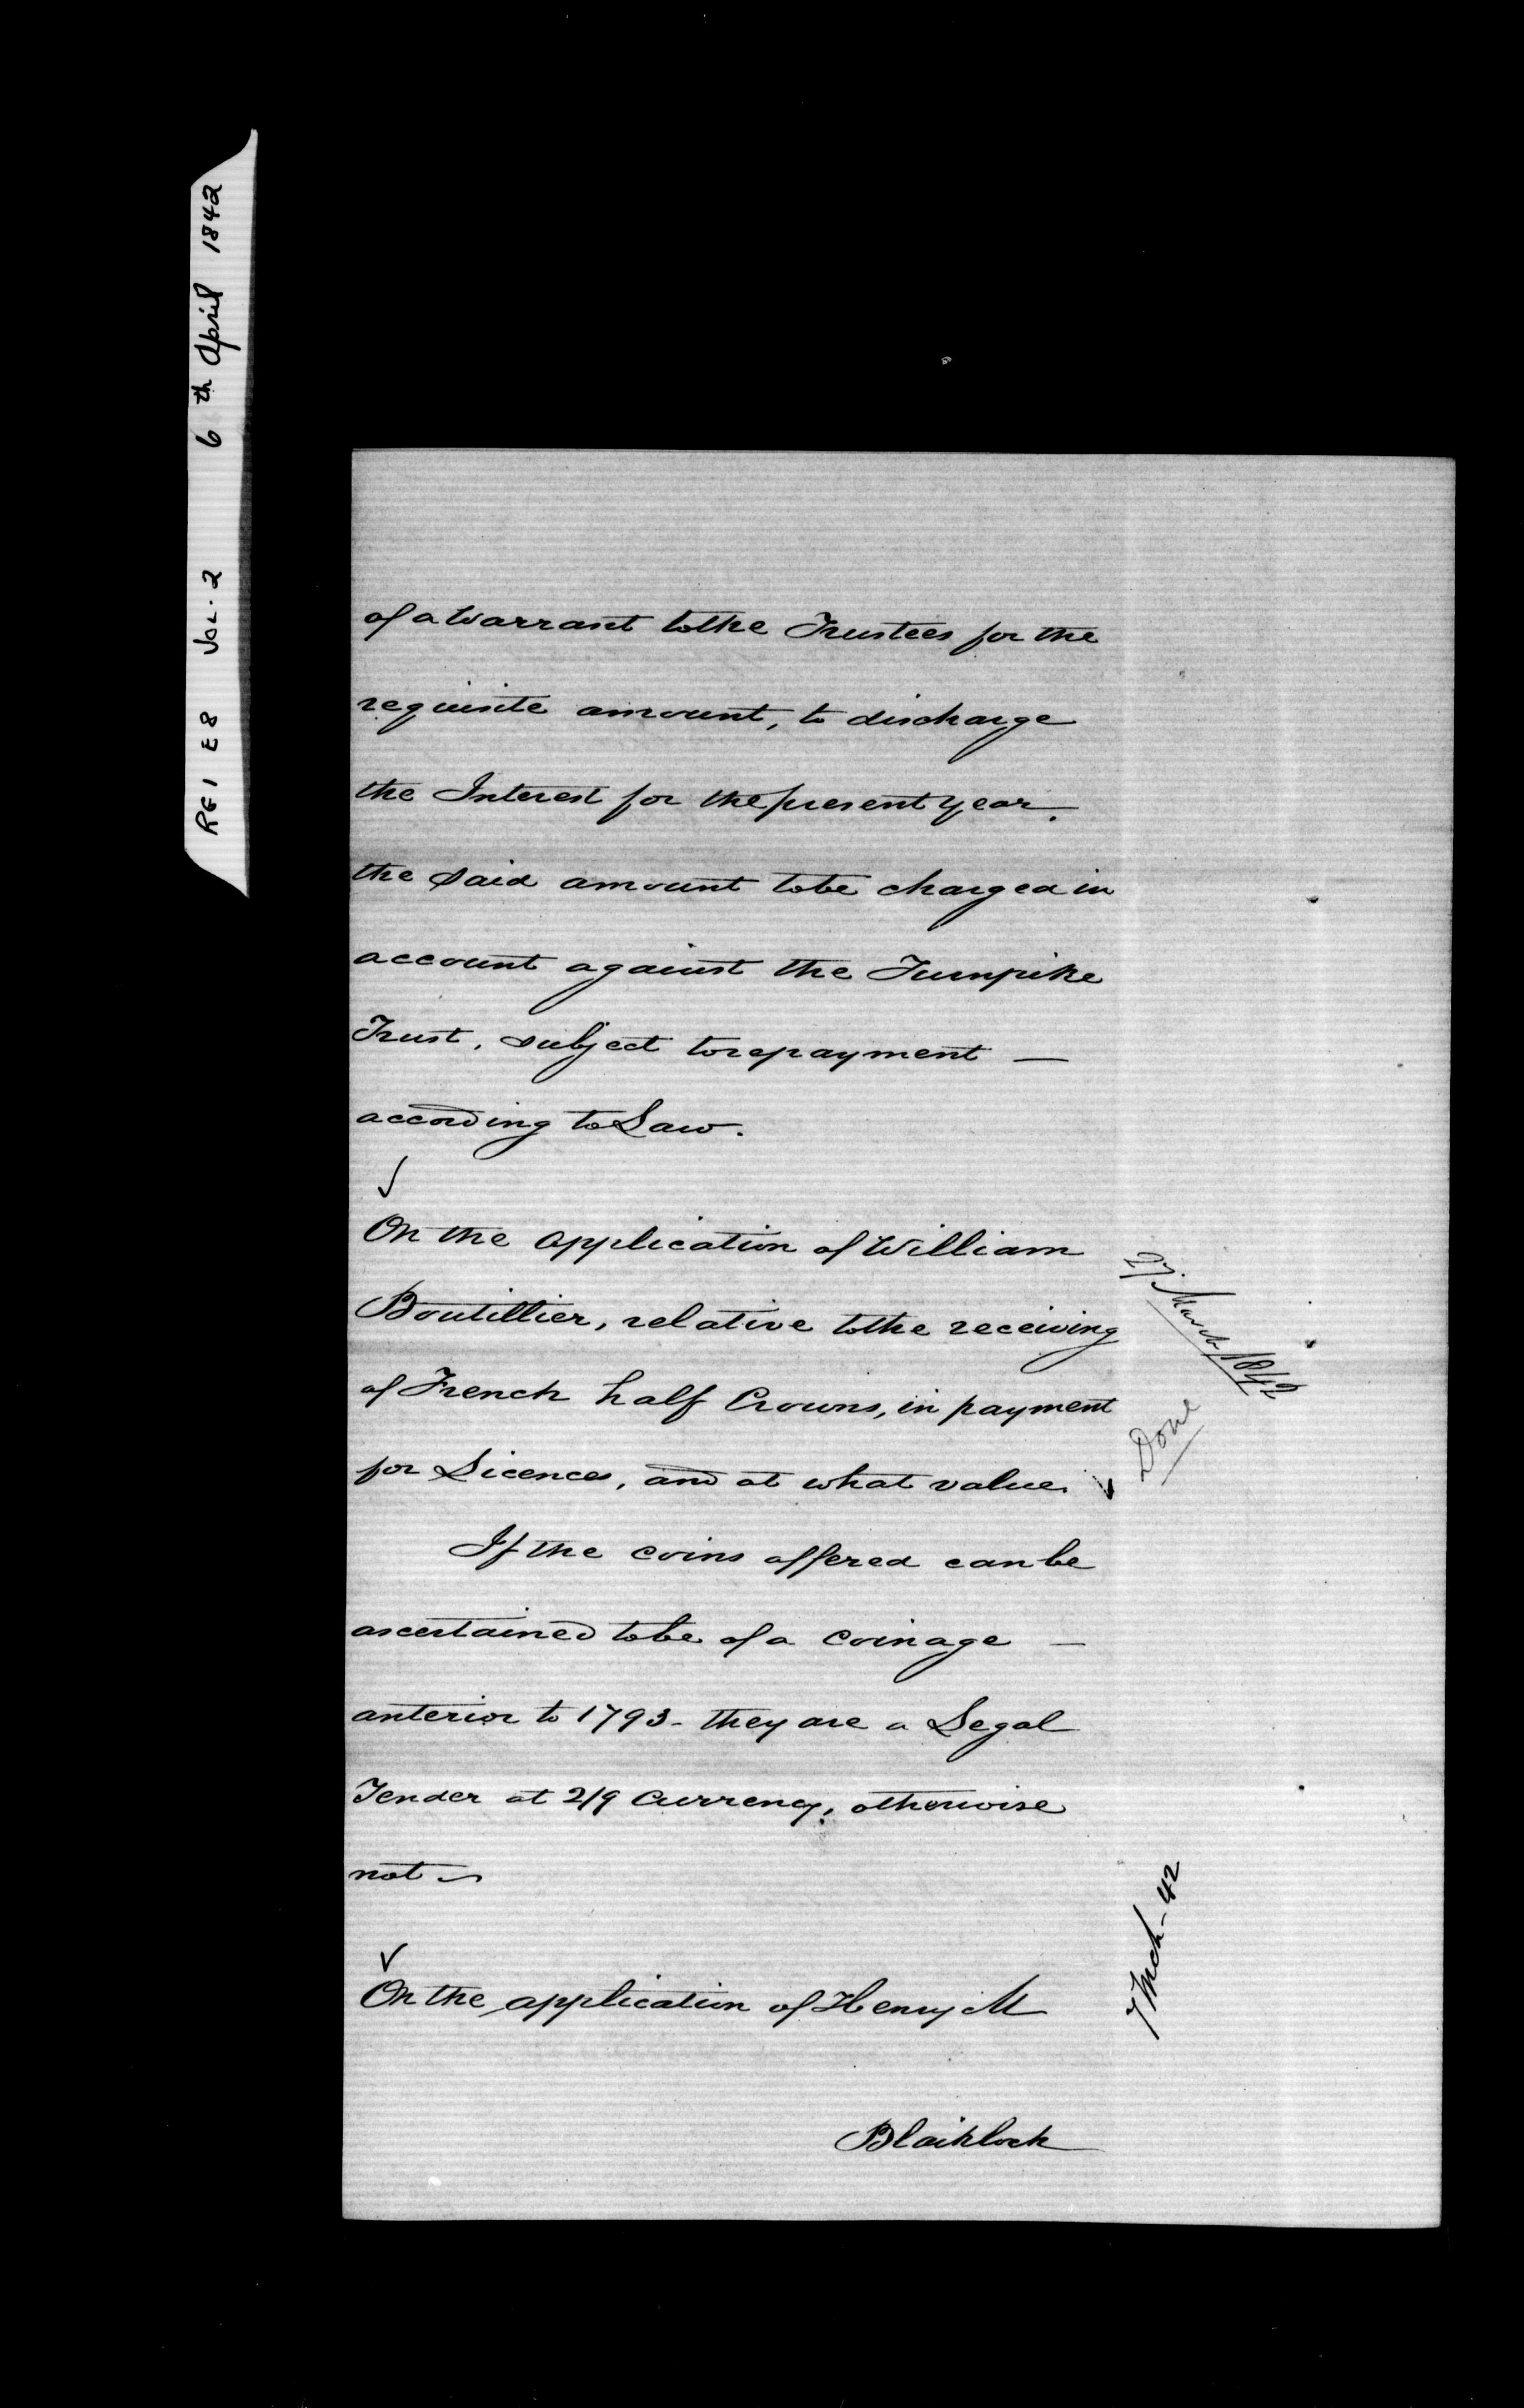 RG1 E8 Vol. 2 6th April 1842
of a Warrant to the Trustees for the
requisite amount, to discharge
the Interest for the present year.
the said amount to be charged in
account against the Turnpike
Trust, subject to repayment —
according to Law.
✓
On the application of William
Boutillier, relative to the receiving
of French half Crowns, in payment
for Licences, and at what value. ✓
27 March 1842
Done
If the coins offered can be
ascertained to be of a coinage —
anterior to 1793 - they are a Legal
Tender at 2/9 Currency, otherwise
not —
✓
On the application of Henry M
7 Mch - 42
Blaiklock